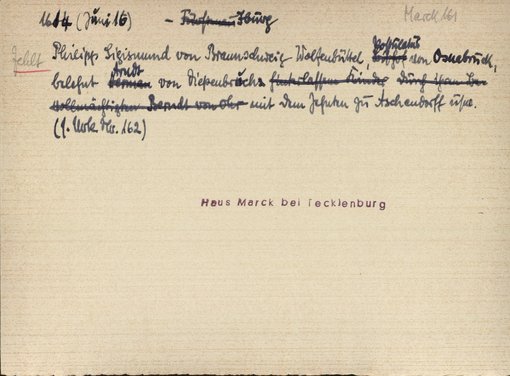 1614 (Juni 16) - Fürstenau Iburg Marck 161
fehlt Philipp Sigismund von Braunschweig Wolfenbüttel, Postulatus Bischof von Osnabrück,
belehnt Arndt Herman von Dießenbrock hinterlassene Kinder durch ihren Be-
vollmächtigten Berndt von Ohr mit dem Zehnten zu Aschendorff usw.
(s. Urk. Nr. 162)
Haus Marck bei Tecklenburg